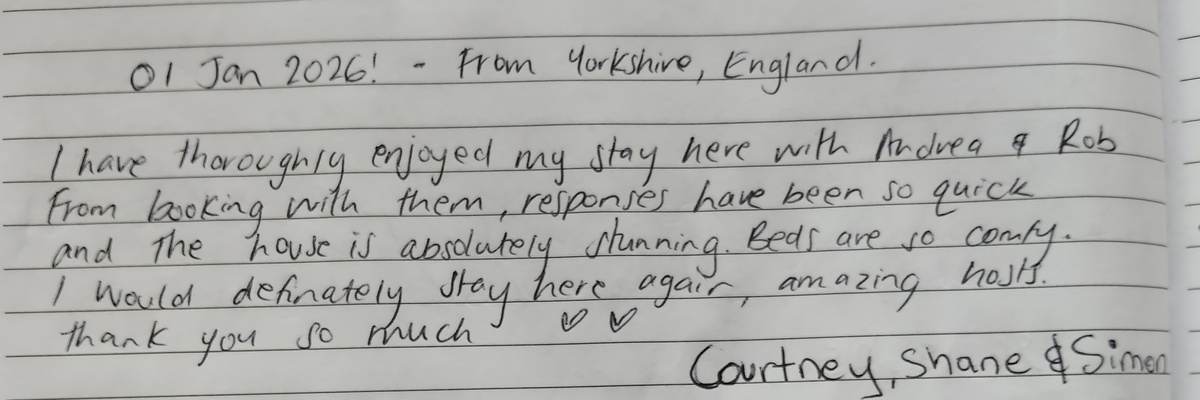 01 Jan 2026! - From Yorkshire, England.
I have thoroughly enjoyed my stay here with Andrea & Rob
From booking with them, responses have been so quick
and The house is absolutely stunning. Beds are so comfy.
I would definately stay here again, amazing hosts.
thank you so much ♡ ♡
Courtney, Shane & Simon